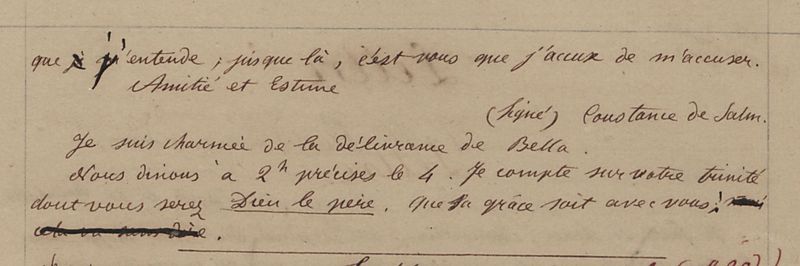 que j'entende ; jusque là, c'est vous que j'accuse de m'accuser.
Amitié et Estime
(Signé) Constance de Salm.
Je suis charmée de la délivrance de Bella.
Nous dinons à 2h précises le 4. Je compte sur votre trinité
dont vous serez Dieu le père. Que sa grâce soit avec vous !